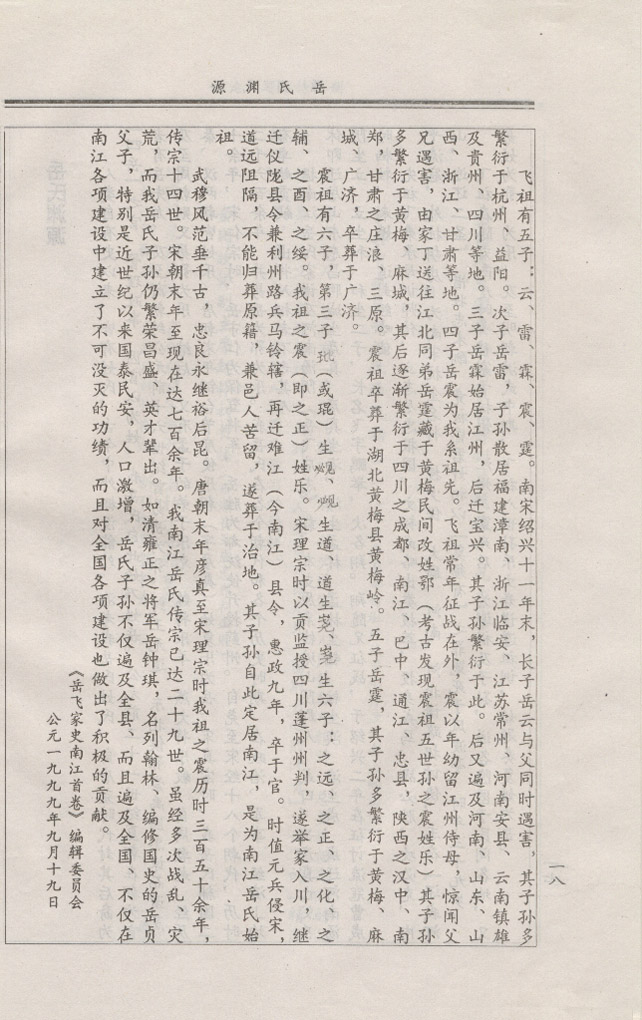 岳氏渊源
飞祖有五子：云、雷、霖、震、霆。南宋绍兴十一年末，长子岳云与父同时遇害，其子孙多
繁衍于杭州、益阳。次子岳雷，子孙散居福建漳南、浙江临安、江苏常州、河南安县、云南镇雄
及贵州、四川等地。三子岳霖始居江州，后迁宝兴。其子孙繁衍于此。后又遍及河南、山东、山
西、浙江、甘肃等地。四子岳震为我系祖先。飞祖常年征战在外，震以年幼留江州侍母，惊闻父
兄遇害，由家丁送往江北同弟岳霆藏于黄梅民间改姓鄂（考古发现震祖五世孙之震姓乐）其子孙
多繁衍于黄梅、麻城，其后逐渐繁衍于四川之成都、南江、巴中、通江、忠县，陕西之汉中、南
郑，甘肃之庄浪、三原。震祖卒葬于湖北黄梅县黄梅岭。五子岳霆，其子孙多繁衍于黄梅、麻
城、广济，卒葬于广济。
震祖有六子，第三子玭（或琨）生觊、觊生道、道生尭、尭生六子：之远、之正、之化、之
辅、之酉、之绥。我祖之震（即之正）姓乐。宋理宗时以贡监授四川蓬州州判，遂举家入川，继
迁仪陇县令兼利州路兵马铃辖，再迁难江（今南江）县令，惠政九年，卒于官。时值元兵侵宋，
道远阻隔，不能归葬原籍，兼邑人苦留，遂葬于治地。其子孙自此定居南江，是为南江岳氏始
祖。
武穆风范垂千古，忠良永继裕后昆。唐朝末年彦真至宋理宗时我祖之震历时三百五十余年，
传宗十四世。宋朝末年至现在达七百余年。我南江岳氏传宗已达二十九世。虽经多次战乱、灾
荒，而我岳氏子孙仍繁荣昌盛、英才辈出。如清雍正之将军岳钟琪，名列翰林、编修国史的岳贞
父子，特别是近世纪以来国泰民安，人口激增，岳氏子孙不仅遍及全县、而且遍及全国、不仅在
南江各项建设中建立了不可没灭的功绩，而且对全国各项建设也做出了积极的贡献。
《岳飞家史南江首卷》编辑委员会
公元一九九九年九月十九日
一八